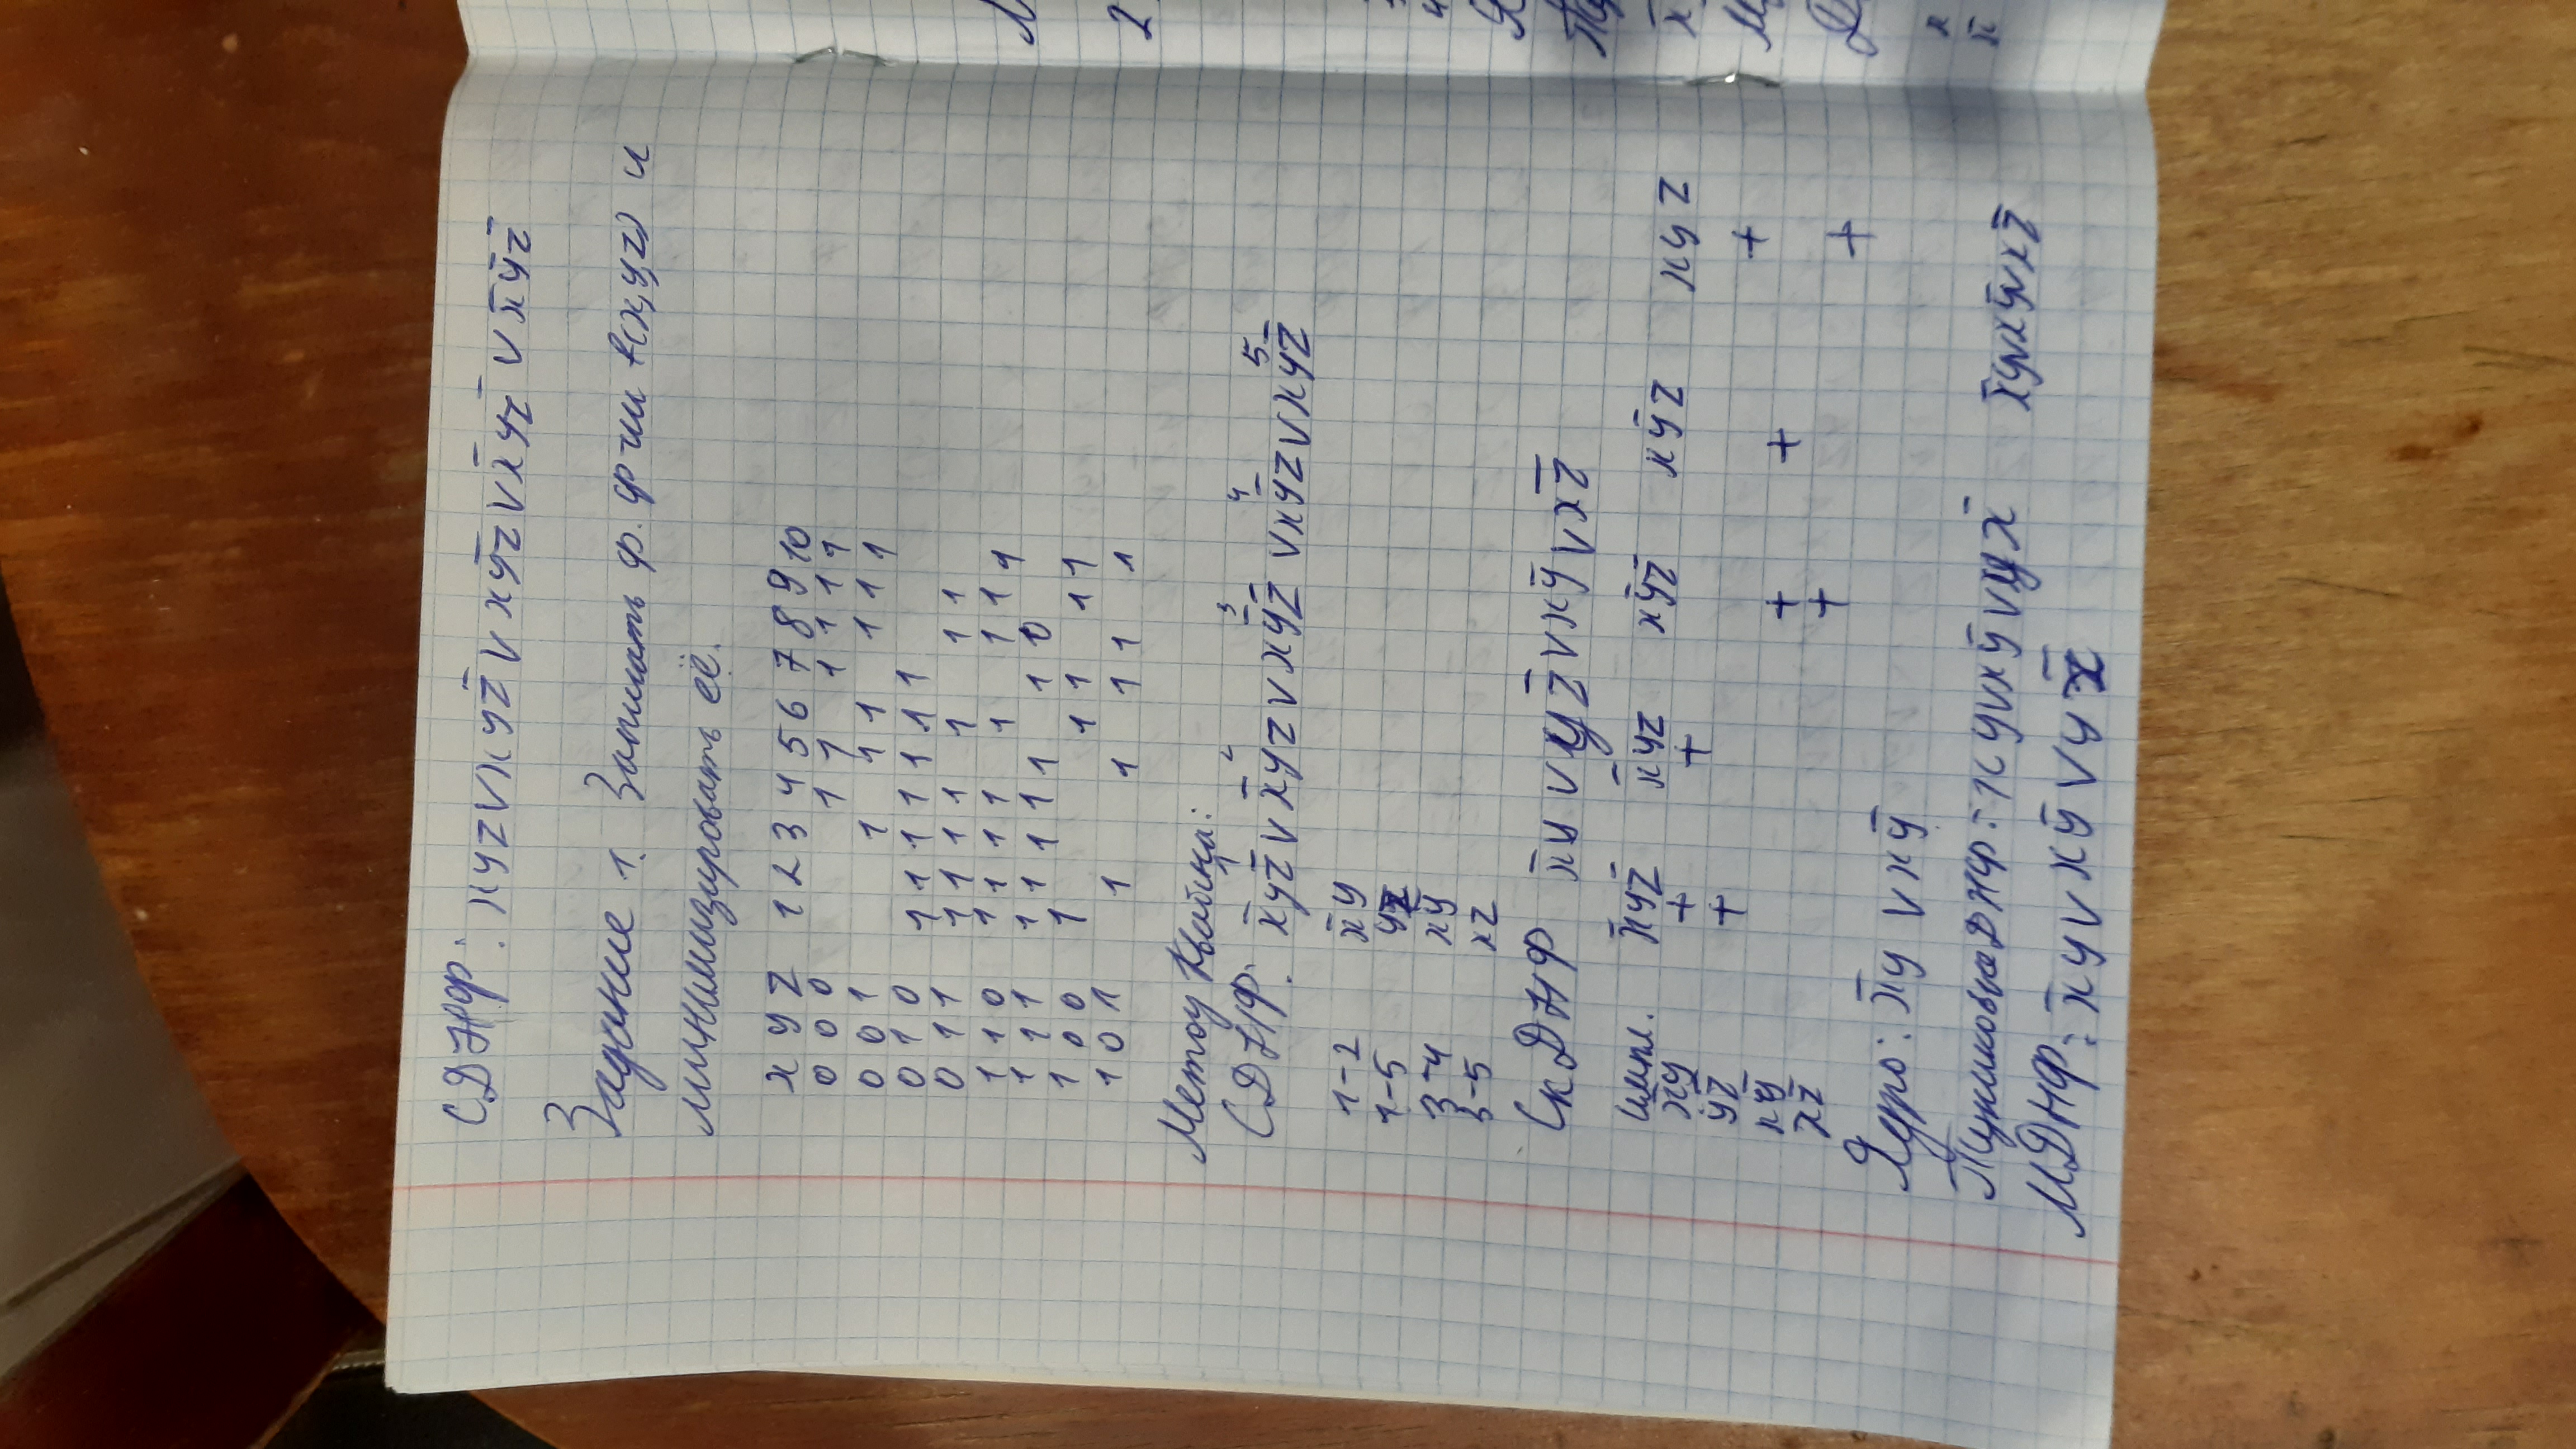 СДНФ: xyz∨xyz̄∨xȳz∨x̄yz̄∨x̄ȳz̄
Задание 1. Записать ф. ф-ии f(x,y,z) и
минимизировать её.
x y z 1 2 3 4 5 6 7 8 9 10
0 0 0 1 1 1 1 1 1
0 0 1 1 1 1 1 1 1
0 1 0 1 1 1 1 1 1 1
0 1 1 1 1 1 1 1 1 1
1 1 0 1 1 1 1 1 1 1 1
1 1 1 1 1 1 1 1 1 0
1 0 0 1 1 1 1 1
1 0 1 1 1 1 1 1
Метод Квайна:
1 2 3 4 5
СДНФ: x̄yz̄∨x̄yz∨xȳz̄∨xȳz∨xyz̄
1-2 x̄y
1-5 yz̄
3-4 xȳ
3-5 xz
СкДНФ x̄y∨yz̄∨xȳ∨xz̄
импл. x̄yz̄ x̄yz xȳz̄ xȳz xyz
x̄y + +
yz̄ + +
xȳ + +
xz̄ + +
Ядро: x̄y∨xȳ
Тупиковые ДНФ: xy∨xȳ∨yx̄ x̄y∨xȳ∨xz̄
МДНФ: x̄y∨xȳ∨yz̄